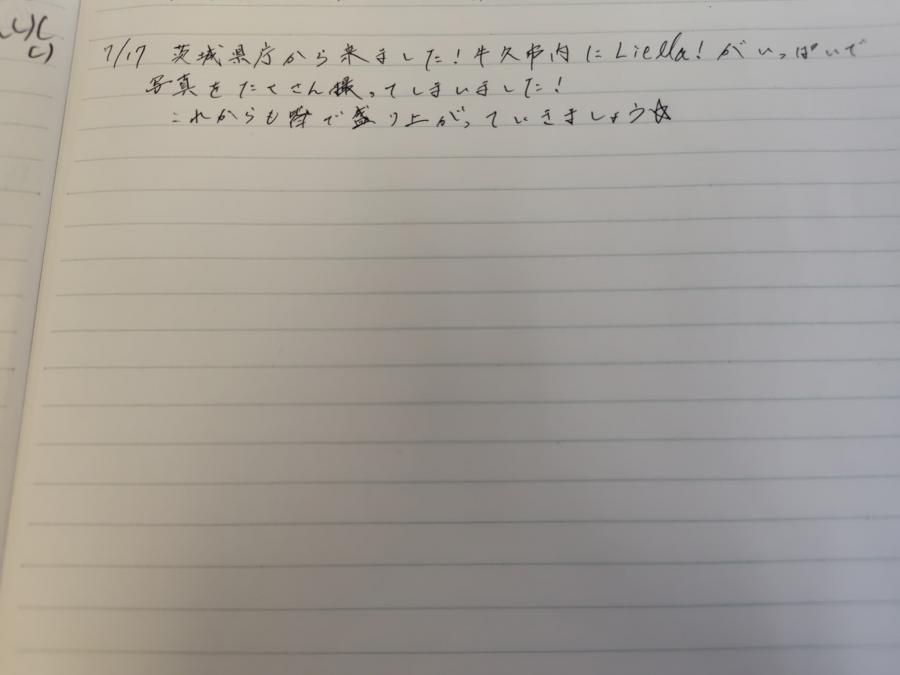 7/17 茨城県庁から来ました！牛久市内にLiella!がいっぱいで
写真をたくさん撮ってしまいました！
これからも皆で盛り上がっていきましょう☆